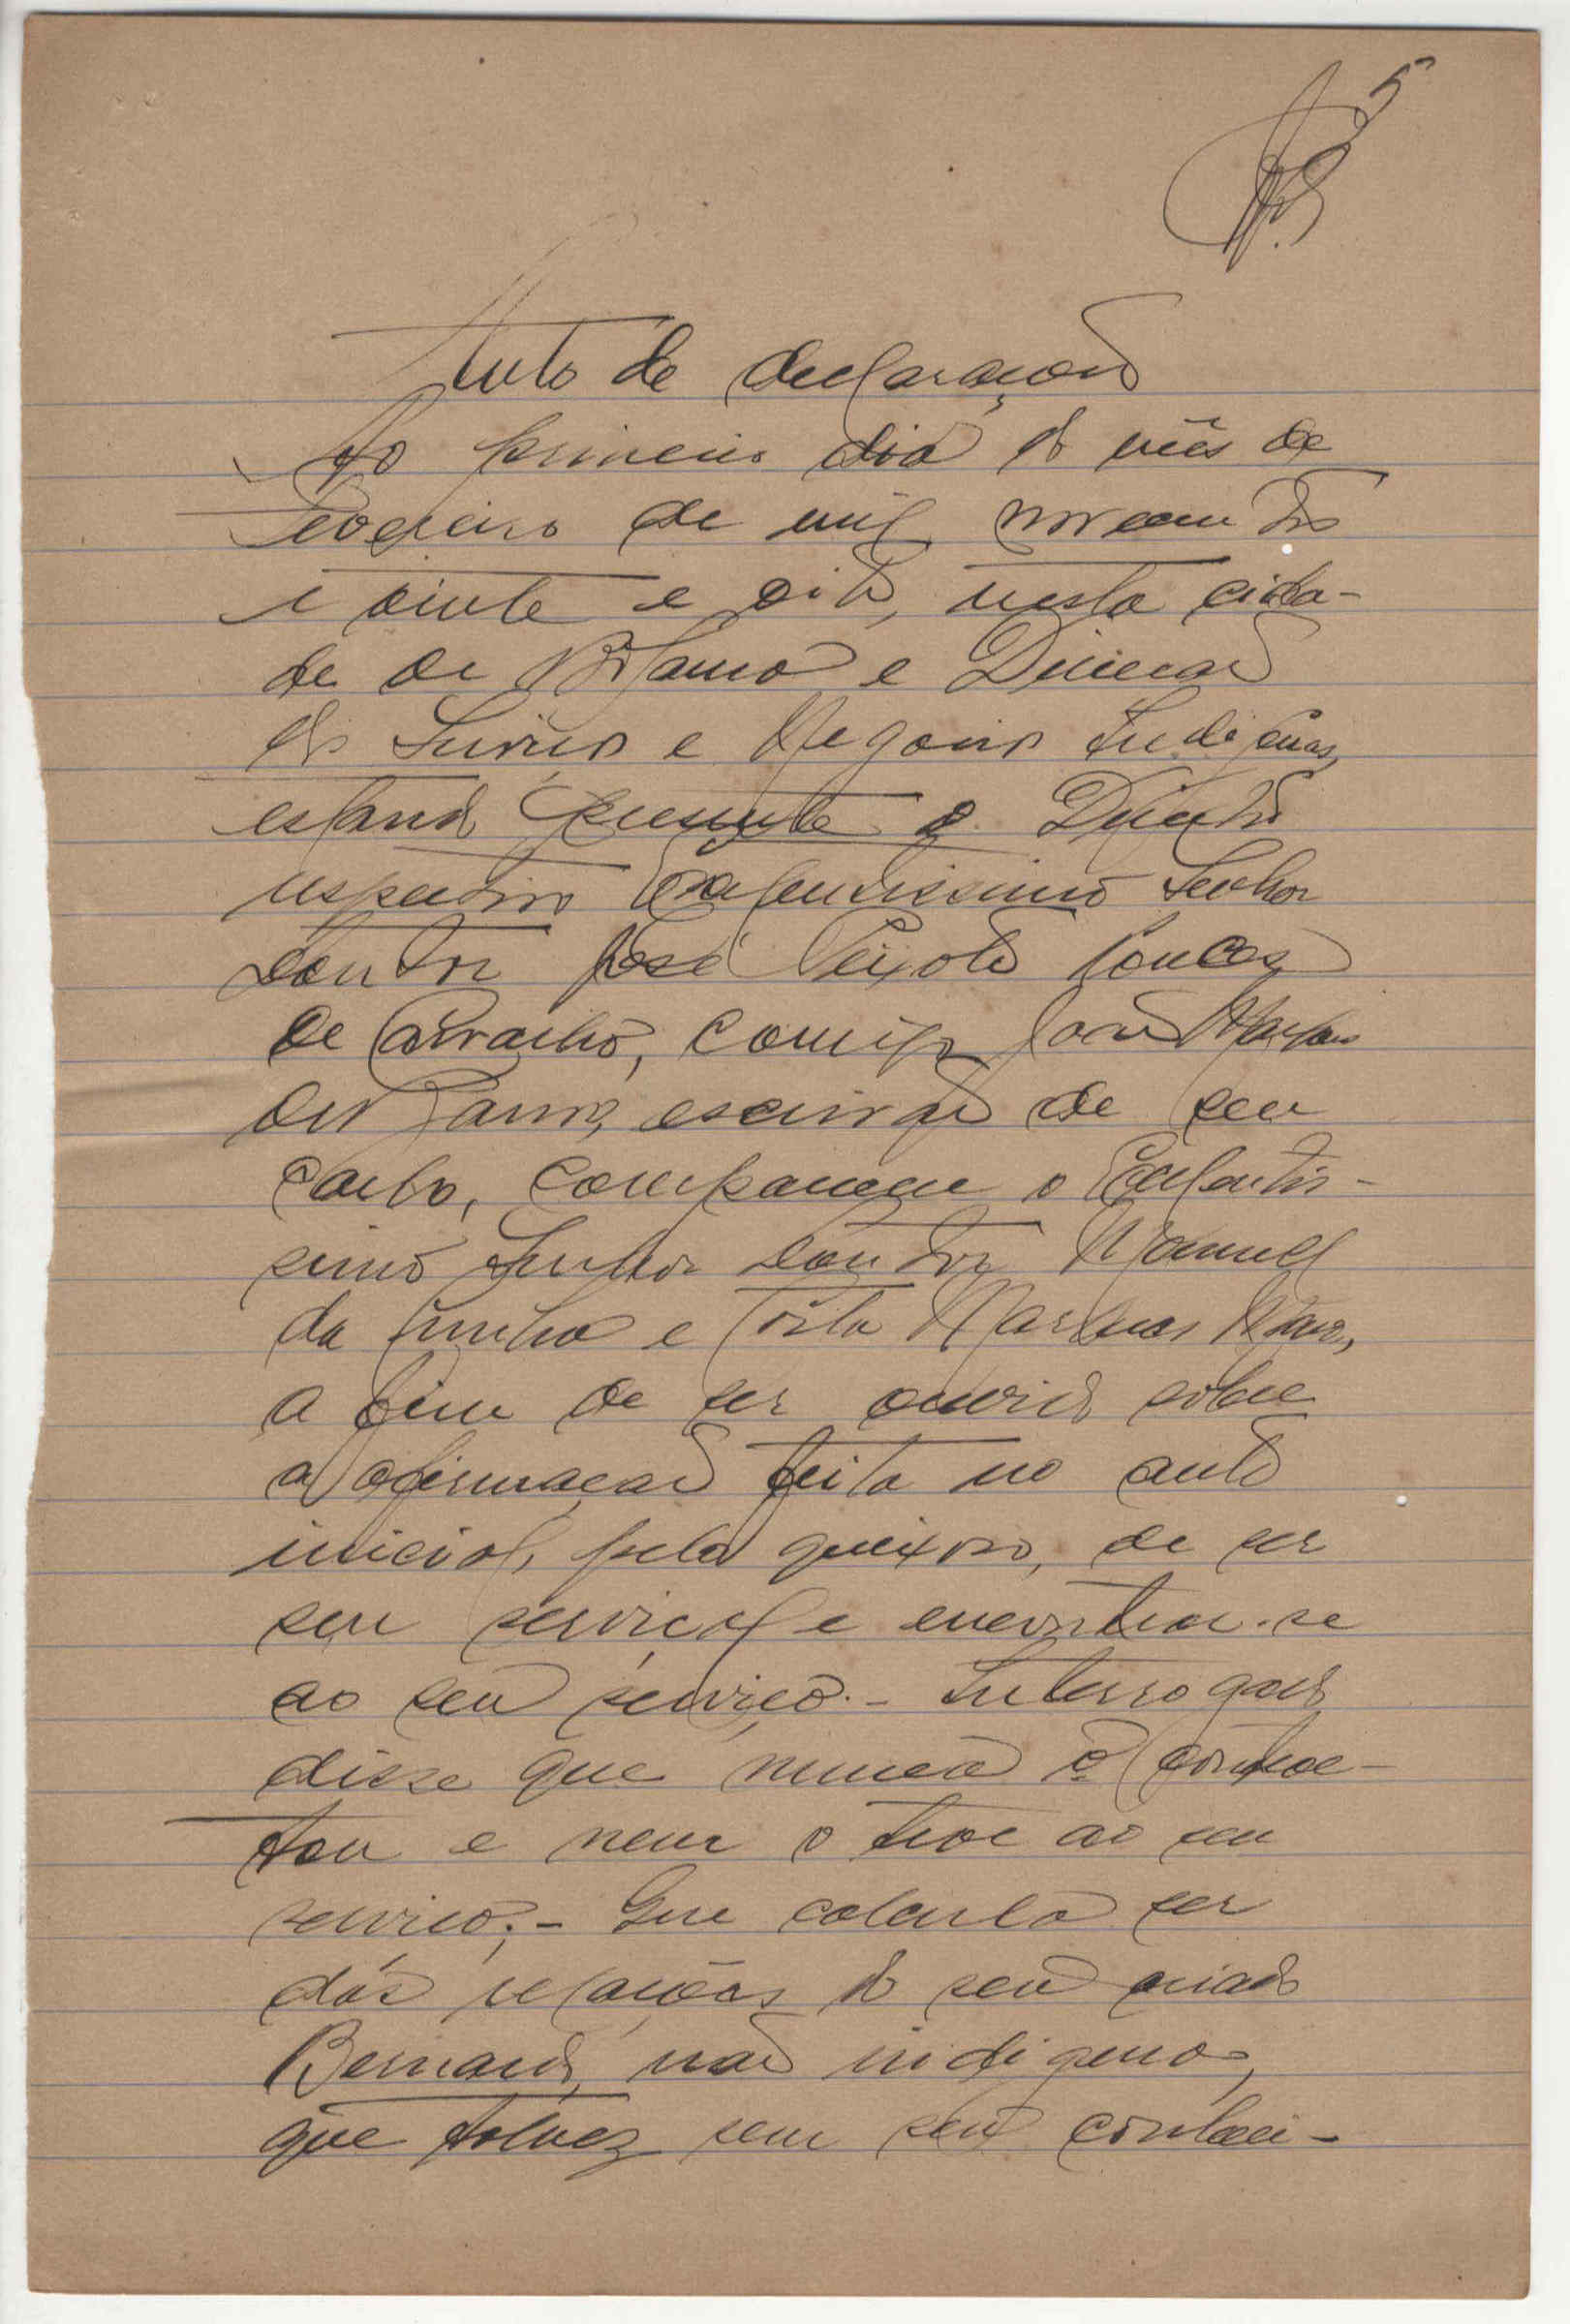 5
Auto de declaração
Ao primeiro dia do mês de
Fevereiro de mil novecentos
e vinte e oito, nesta cida-
de de e Direcção
dos Serviços e Negocios Indigenas,
estando presente o Director
respectivo Excelentissimo Senhor
Doutor José Peixoto Ponces
de Carvalho, comigo João
escrivão de seu
cargo, compareceu o Excelentis-
simo Senhor Doutor Manuel
da Cunha e Costa Marques Mano,
a fim de ser ouvido sobre
a afirmação feita no auto
inicial, pelo queixoso, de ser
seu serviçal e encontrar-se
ao seu serviço.- Interrogado
disse que nunca o contra-
tou e nem o teve ao seu
serviço;- Que calcula ser
das relações do seu criado
Bernardo, não indigena,
que talvez sem seu conheci-